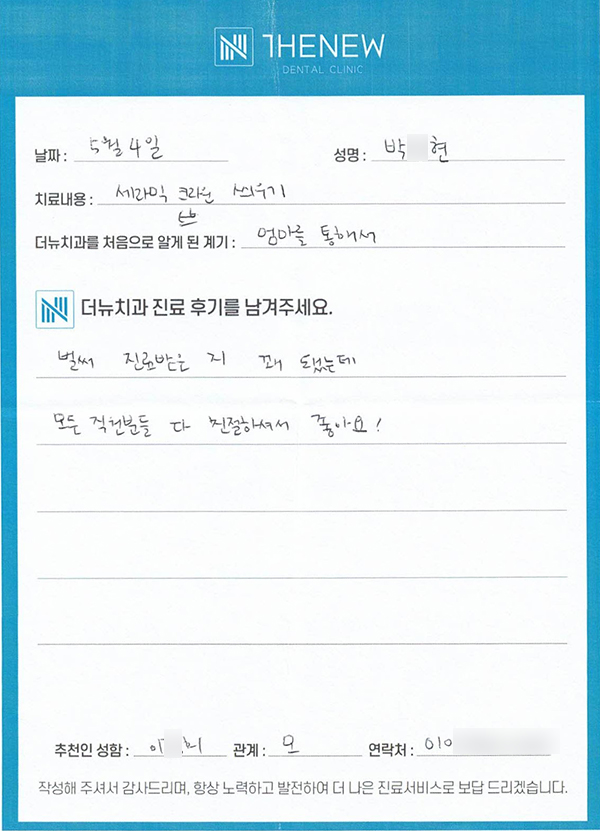 THENEW
DENTAL CLINIC
날짜 : 5월 4일 성명 : 박 현
치료내용 : 세라믹 크라운 씌우기
더뉴치과를 처음으로 알게 된 계기 : 엄마를 통해서
더뉴치과 진료 후기를 남겨주세요.
벌써 진료받은 지 꽤 됐는데
모든 직원분들 다 친절하셔서 좋아요!
추천인 성함 : 이 희 관계 : 모 연락처 : 010
작성해 주셔서 감사드리며, 항상 노력하고 발전하여 더 나은 진료서비스로 보답 드리겠습니다.